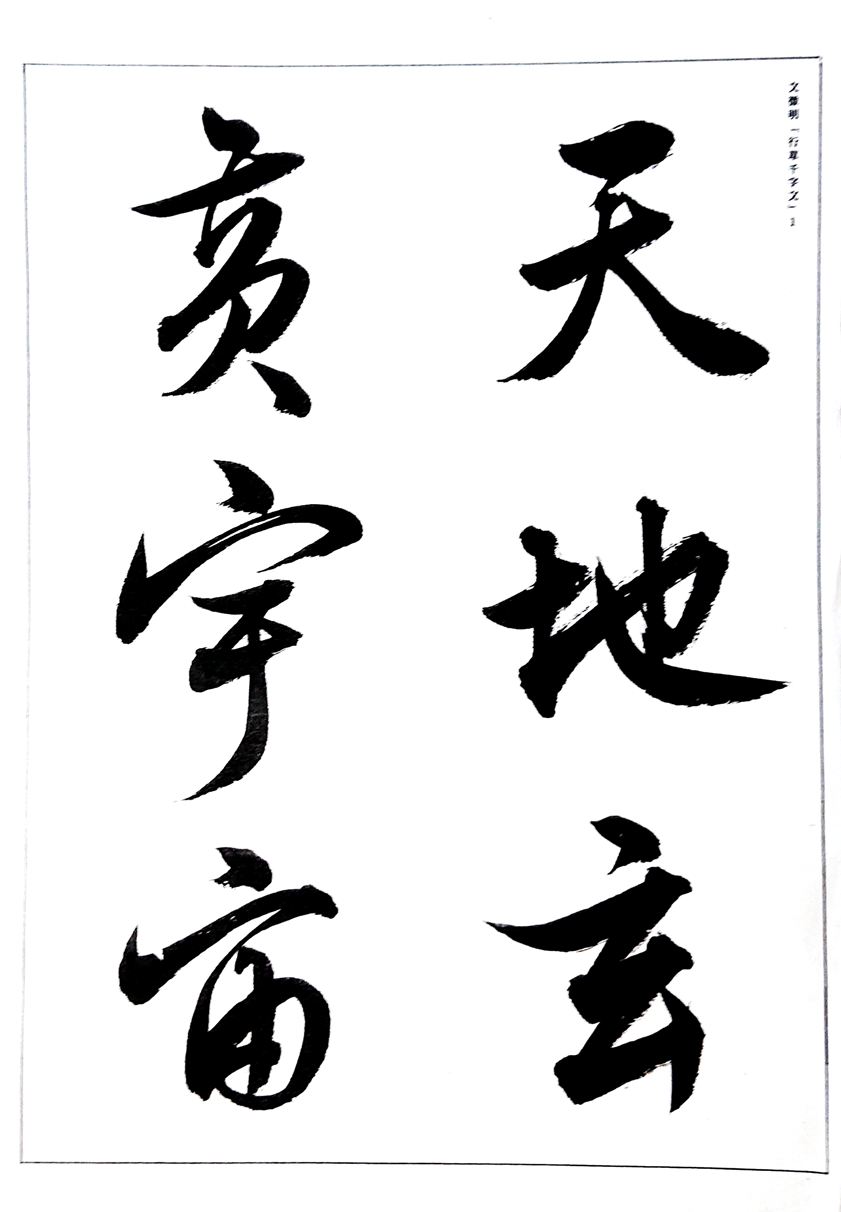 文徵明「行草千字文」1
天地玄
黃宇宙